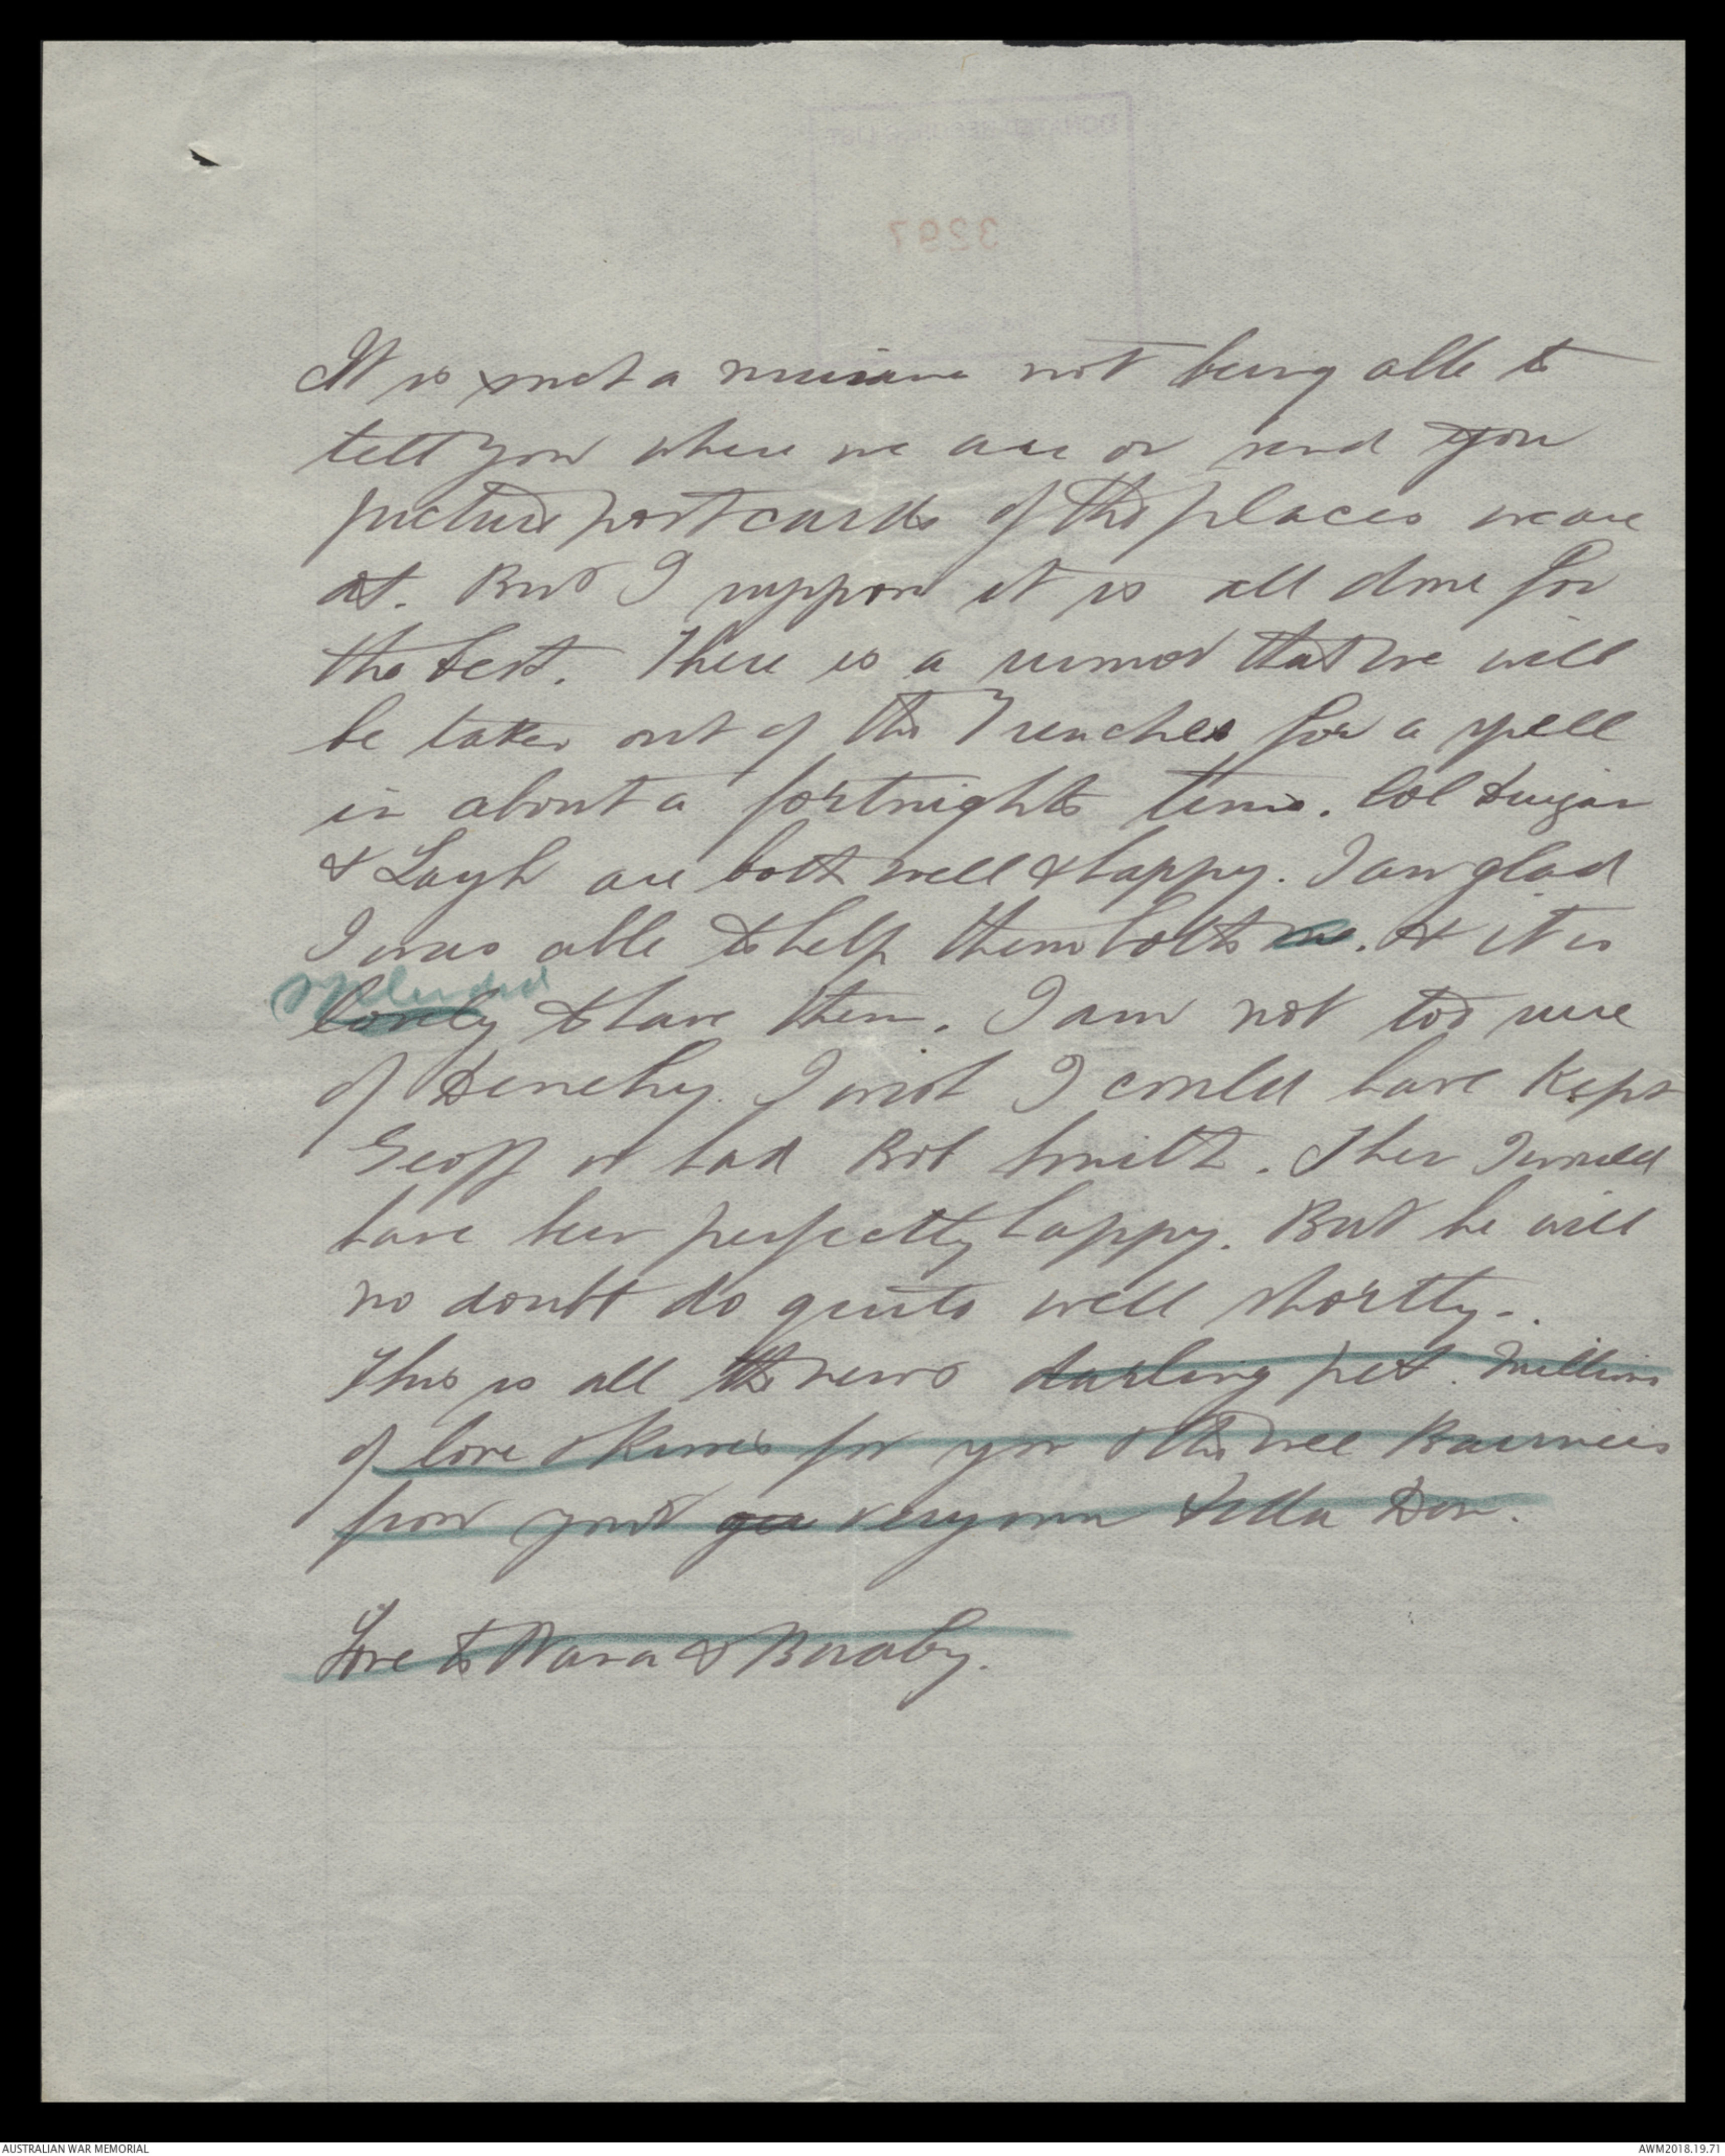 3297
It is such a nuisance not being able to
tell you where we are or send you
picture postcards of the places we are
at. But I suppose it is all done for
the best. There is a rumor that we will
be taken out of the Trenches for a spell
in about a fortnights time. Col Duigan
& Layh are both well & happy. I am glad
I was able to help them both . & it is
splendid
lovely to have them. I am not too sure
of Denehy. I wish I could have kept
Geoff or had Bob Smith. Then I would
have been perfectly happy. But he will
no doubt do quite well shortly.
This is all the news darling pet. Millions
of love & kisses for you & the wee Bairnies
from your very own Fella Don.
Love to Nana & Baaby.
AUSTRALIAN WAR MEMORIAL
AWM2018.19.71